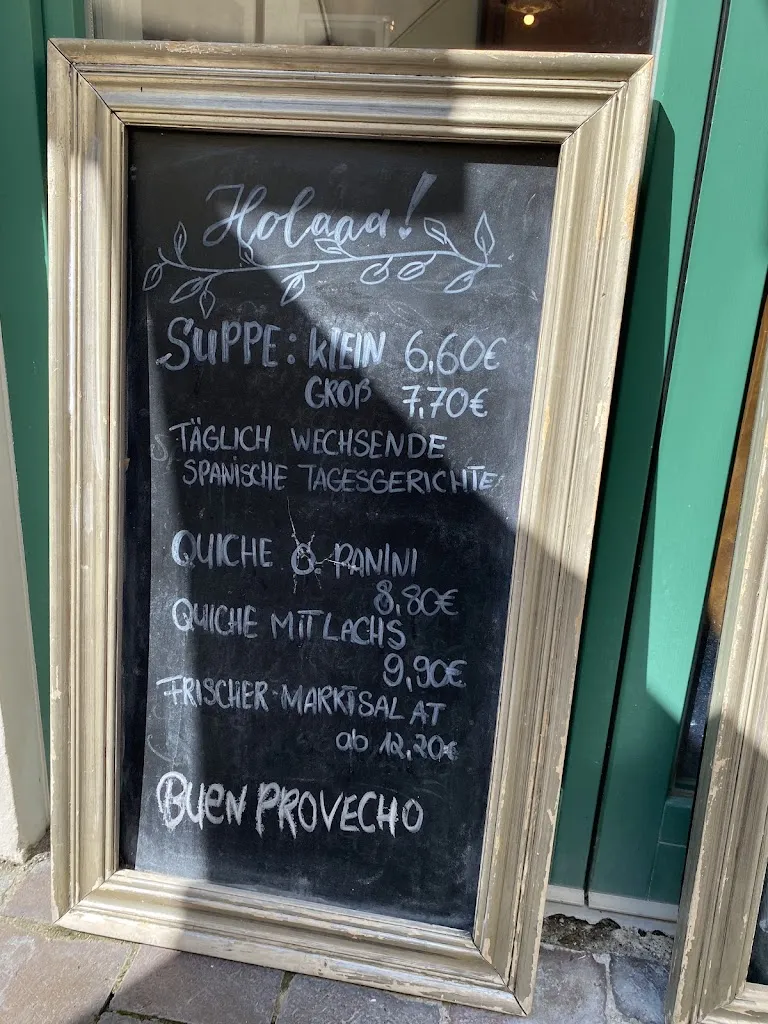 Holaaa!
SUPPE: KLEIN 6,60€
GROß 7,70€
TÄGLICH WECHSENDE
SPANISCHE TAGESGERICHTE
QUICHE o. PANINI
8,80€
QUICHE MIT LACHS
9,90€
FRISCHER MARKTSALAT
ab 12,20€
BUEN PROVECHO